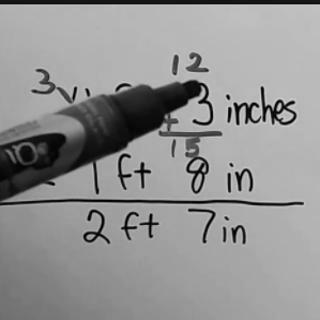 12
3 3 inches
+
15
1 ft 8 in
2 ft 7 in